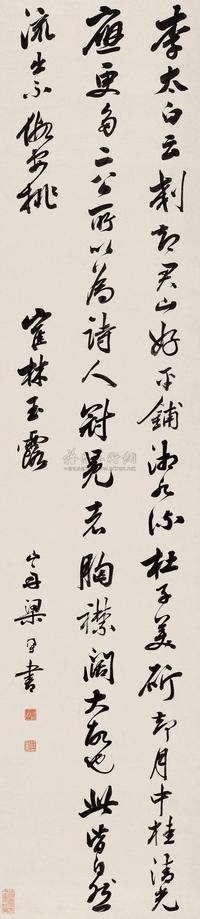 李太白云剗却君山好平鋪湘水流杜子美斫却月中桂清光
應更多二公所以為詩人冠冕者胸襟闊大故也此皆自然
流出不假安排 寉林玉露 山舟梁同書